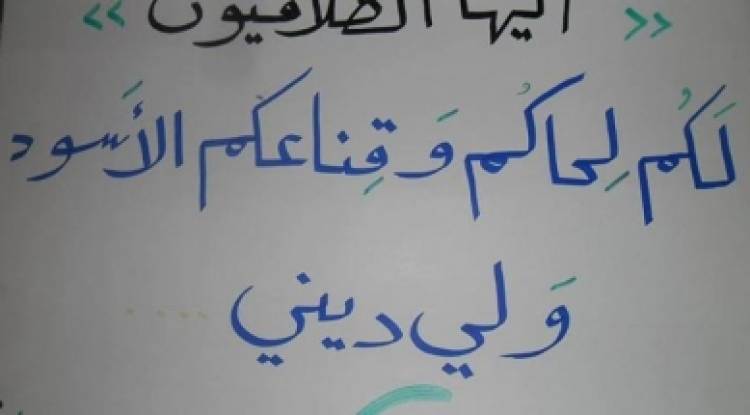 « أيها الظلاميون »
لَكُم لِحاكُم وَ قِناعكم الأَسود
وَ لي ديني ....